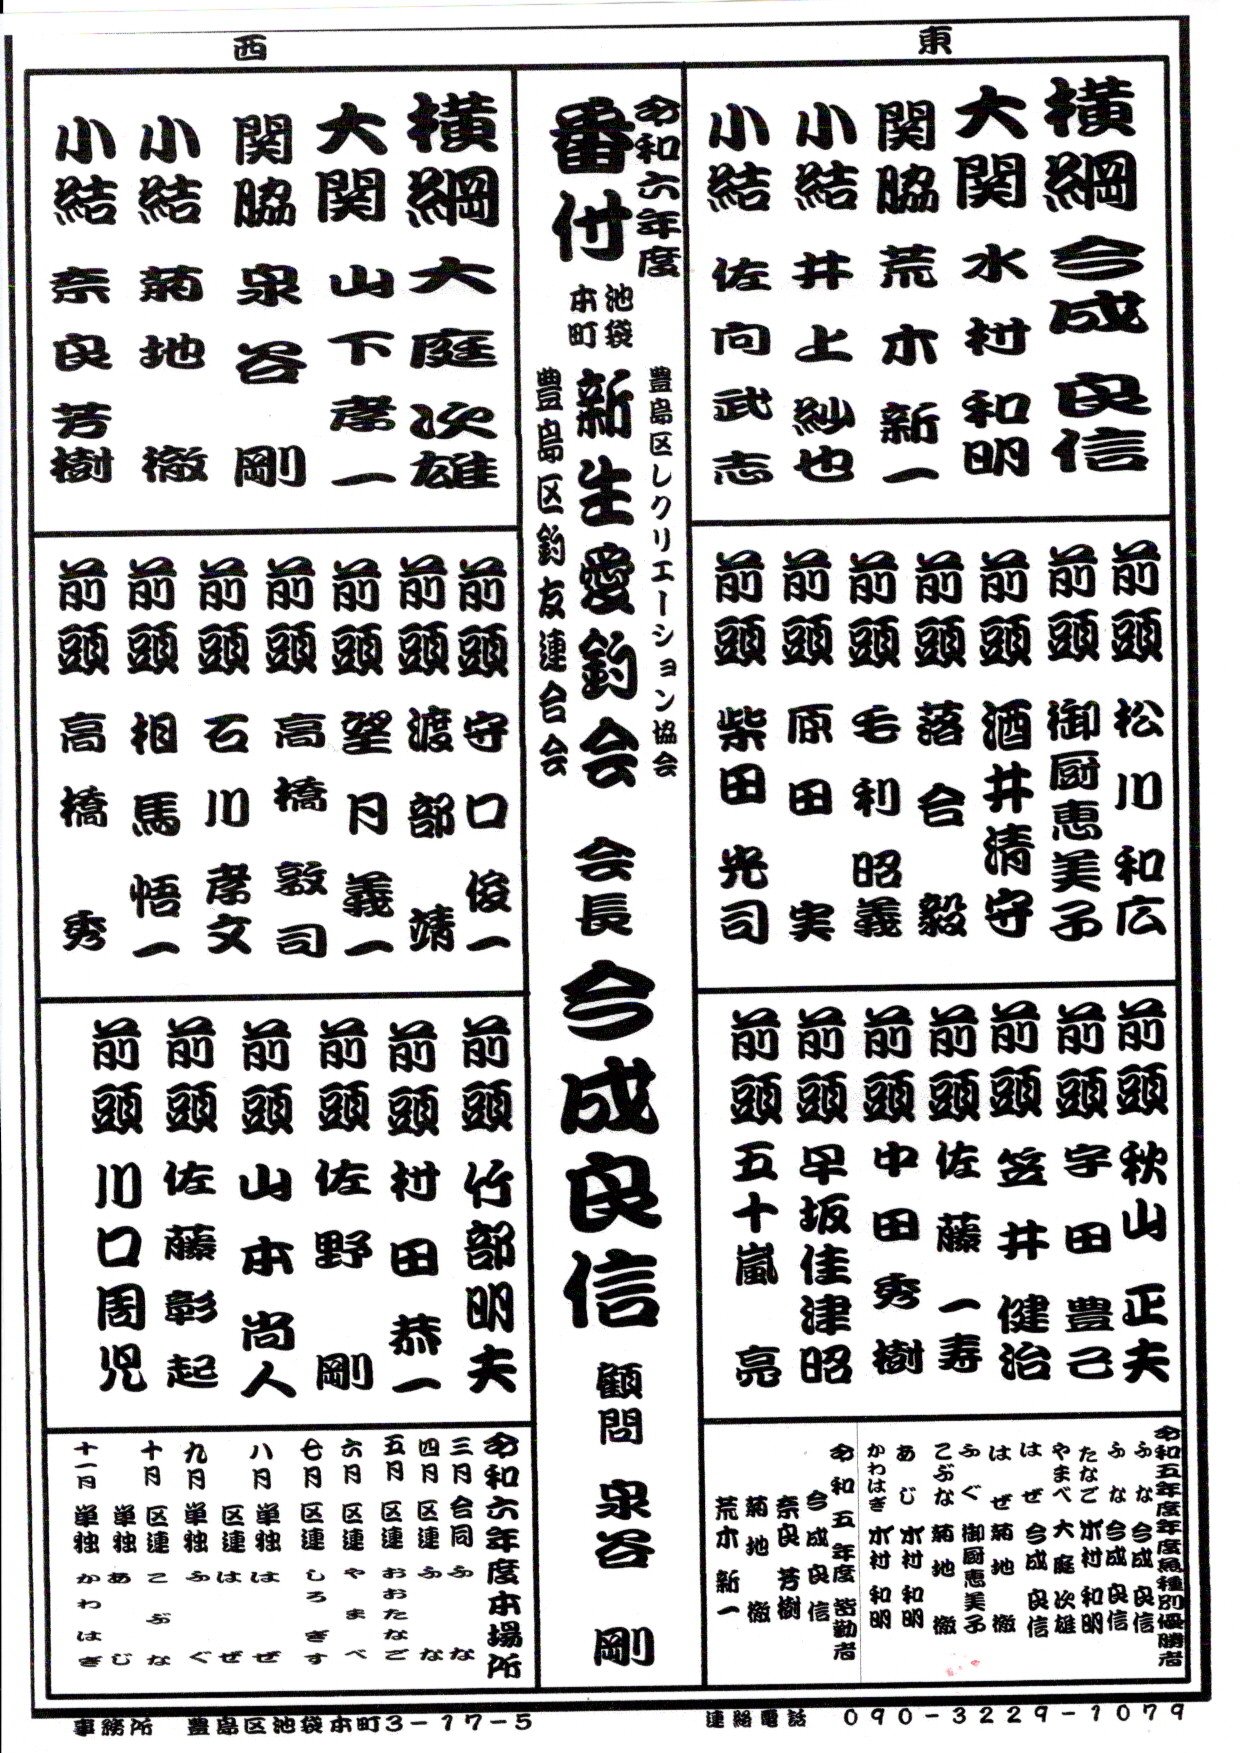 東
横綱 今成 良信
大関 水村 和明
関脇 荒木 新一
小結 井上 紗也
小結 佐向 武志
前頭 松川 和広
前頭 御厨恵美子
前頭 酒井清守
前頭 落合 毅
前頭 毛利 昭義
前頭 原田 実
前頭 柴田 光司
前頭 秋山 正夫
前頭 宇田 豊己
前頭 笠井 健治
前頭 佐藤 一寿
前頭 中田 秀樹
前頭 早坂佳津昭
前頭 五十嵐 亮
令和五年度年度魚種別優勝者
ふな 今成 良信
ふな 今成 良信
たなご 水村 和明
やまべ 大庭 次雄
はぜ 今成 良信
はぜ 菊地 徹
ふぐ 御厨恵美子
こぶな 菊地 徹
あじ 水村 和明
かわはぎ 水村 和明
令和五年度皆勤者
今成 良信
奈良 芳樹
菊地 徹
荒木 新一
令和六年度
番付
池袋
本町
豊島区レクリエーション協会
新生愛釣会
豊島区釣友連合会
会長 今成良信
顧問 泉谷 剛
西
横綱 大庭 次雄
大関 山下 孝一
関脇 泉谷 剛
小結 菊地 徹
小結 奈良 芳樹
前頭 守口 俊一
前頭 渡部 靖
前頭 望月 義一
前頭 高橋 敦司
前頭 石川 孝文
前頭 相馬 悟一
前頭 高橋 秀
前頭 竹部明夫
前頭 村田 恭一
前頭 佐野 剛
前頭 山本 尚人
前頭 佐藤彰起
前頭 川口周児
令和六年度本場所
三月 合同 ふな
四月 区連 ふな
五月 区連 おおたなご
六月 区連 やまべ
七月 区連 しろぎす
八月 単独 はぜ
区連 はぜ
九月 単独 ふぐ
十月 区連 こぶな
単独 あじ
十一月 単独 かわはぎ
事務所 豊島区池袋本町3-17-5
連絡電話 090-3229-1079